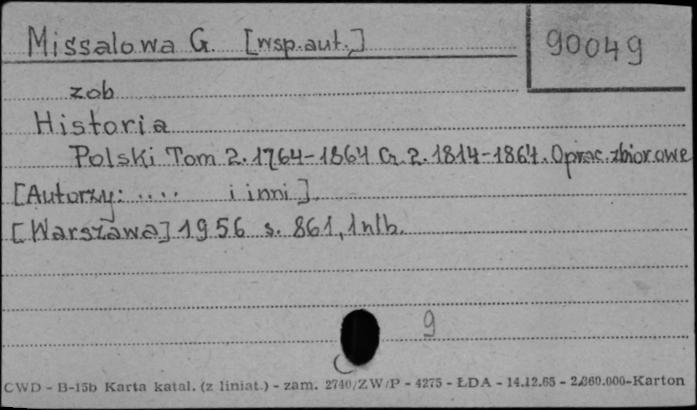 Missalowa G. [wsp.aut.,]
90049
zob
Historia
Polski Tom 2. 1764-1864 Cz. 2. 1814-1864. Oprac. zbiorowe
[Autorzy: .... i inni].
[Warszawa] 1956 s. 861, 1 nlb.
9
CWD - B-15b Karta katal. (z liniat.) - zam. 2740/ZW/P - 4275 - ŁDA - 14.12.65 - 2.360.000-Karton